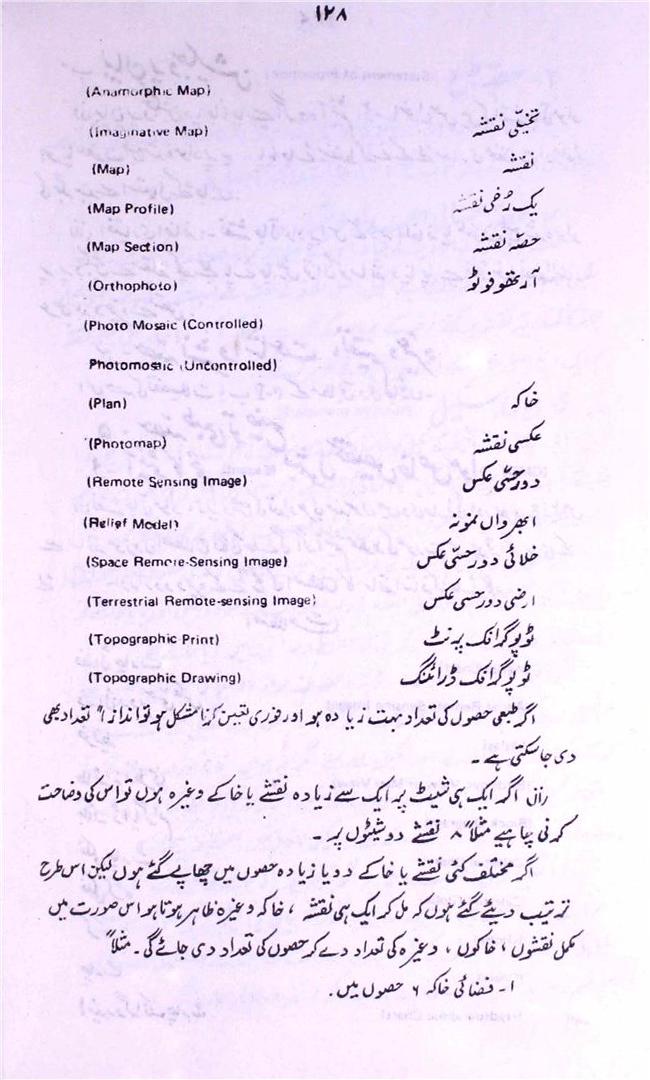 ۱۲۸
(Anamorphic Map)
تخیّلی نقشہ (Imaginative Map)
نقشہ (Map)
یک رُخی نقشہ (Map Profile)
حصّہ نقشہ (Map Section)
آرتھوفوٹو (Orthophoto)
(Photo Mosaic (Controlled)
Photomosaic (Uncontrolled)
خاکہ (Plan)
عکسی نقشہ (Photomap)
دورحسّی عکس (Remote Sensing Image)
ابھرواں نمونہ (Relief Model)
خلائی دورحسّی عکس (Space Remote-Sensing Image)
ارضی دورحسی عکس (Terrestrial Remote-sensing Image)
ٹوپوگرافک پرنٹ (Topographic Print)
ٹوپوگرافک ڈرائنگ (Topographic Drawing)
اگر طبعی حصوں کی تعداد بہت زیادہ ہو اور فوری تعین کرنا مشکل ہو تو اندازاً تعداد بھی
دی جاسکتی ہے ۔
اگر ایک ہی شیٹ پر ایک سے زیادہ نقشے یا خاکے وغیرہ ہوں تو اس کی وضاحت
کرنی چاہیے مثلاً ۸ نقشے دو شیٹوں پر ۔
اگر مختلف کئی نقشے یا خاکے دو یا زیادہ حصوں میں چھاپے گئے ہوں لیکن اس طرح
ترتیب دیئے گئے ہوں کہ مل کر ایک ہی نقشہ ، خاکہ وغیرہ ظاہر ہوتا ہو اس صورت میں
مکمل نقشوں ، خاکوں ، وغیرہ کی تعداد دے کر حصوں کی تعداد دی جائے گی ۔ مثلاً
۱- فضائی خاکہ ۶ حصوں میں ۔